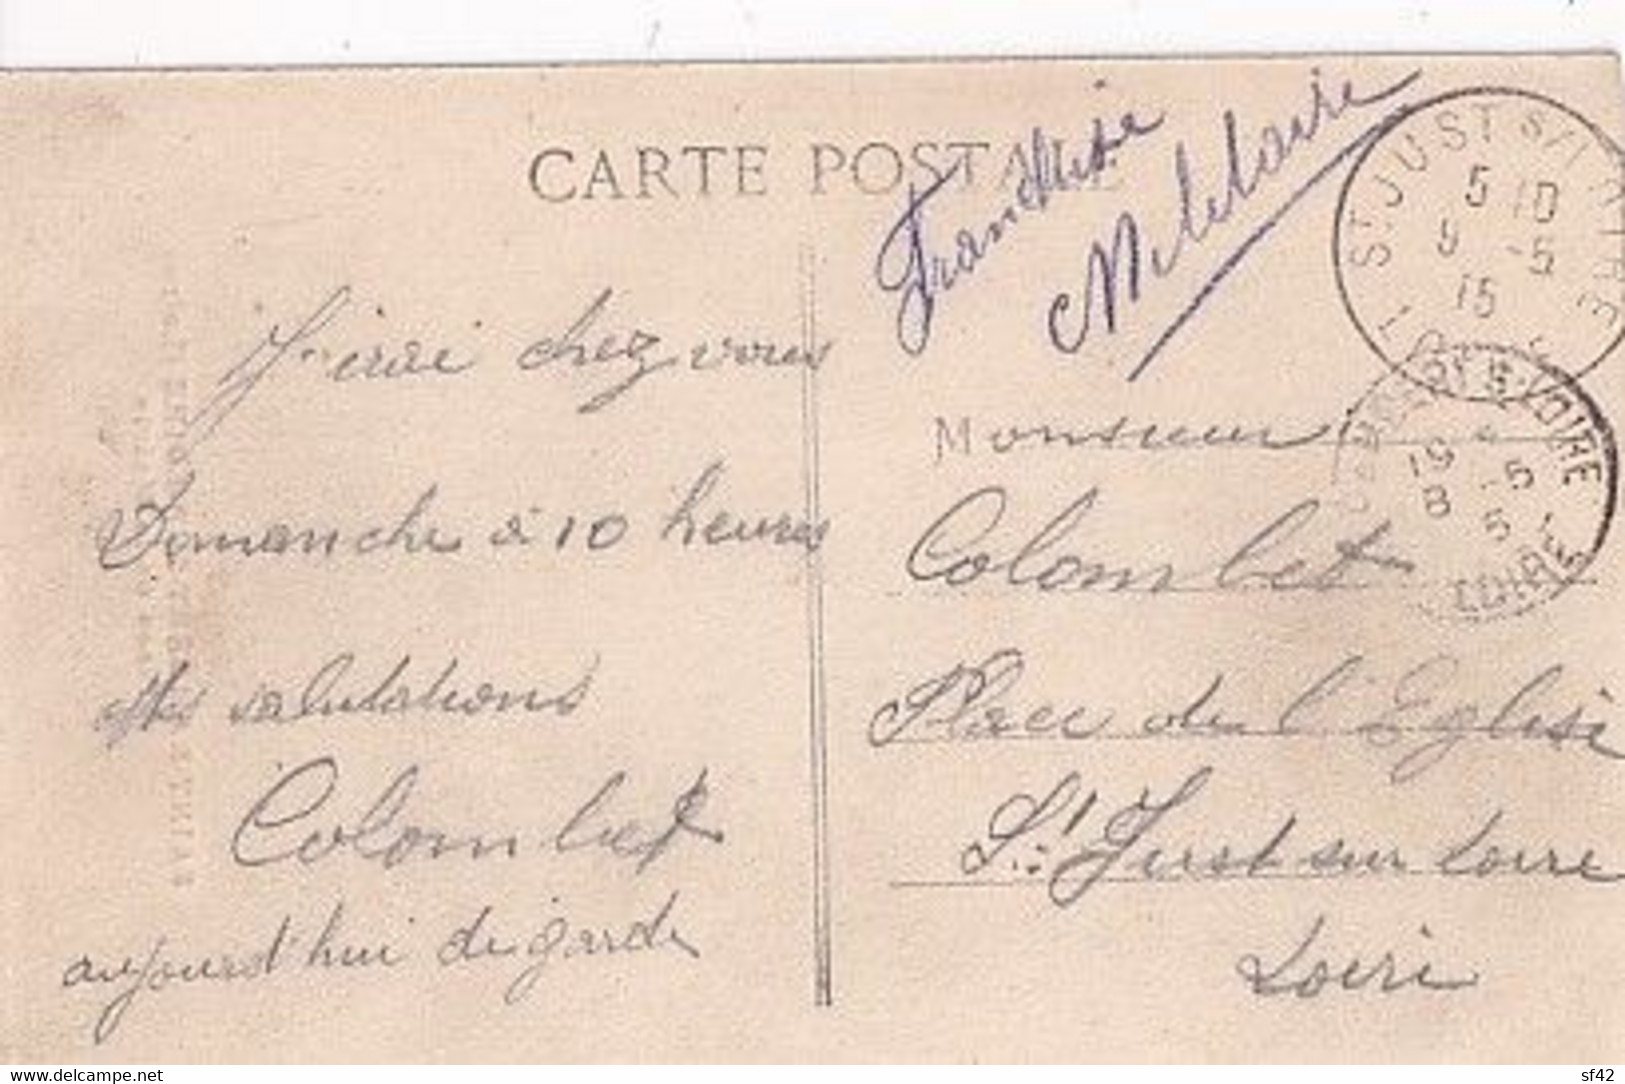 CARTE POSTALE
Franchise
Militaire
J'irai chez vous
Dimanche à 10 heures
Mes salutations
Colombet
aujourd'hui de garde
Monsieur
Colombet
Place de l'Eglise
St. Just sur Loire
Loire
ST JUST S/
5 10
-5
15
LOIRE
19
8 -5
5
LOIRE
delcampe.net
sf42